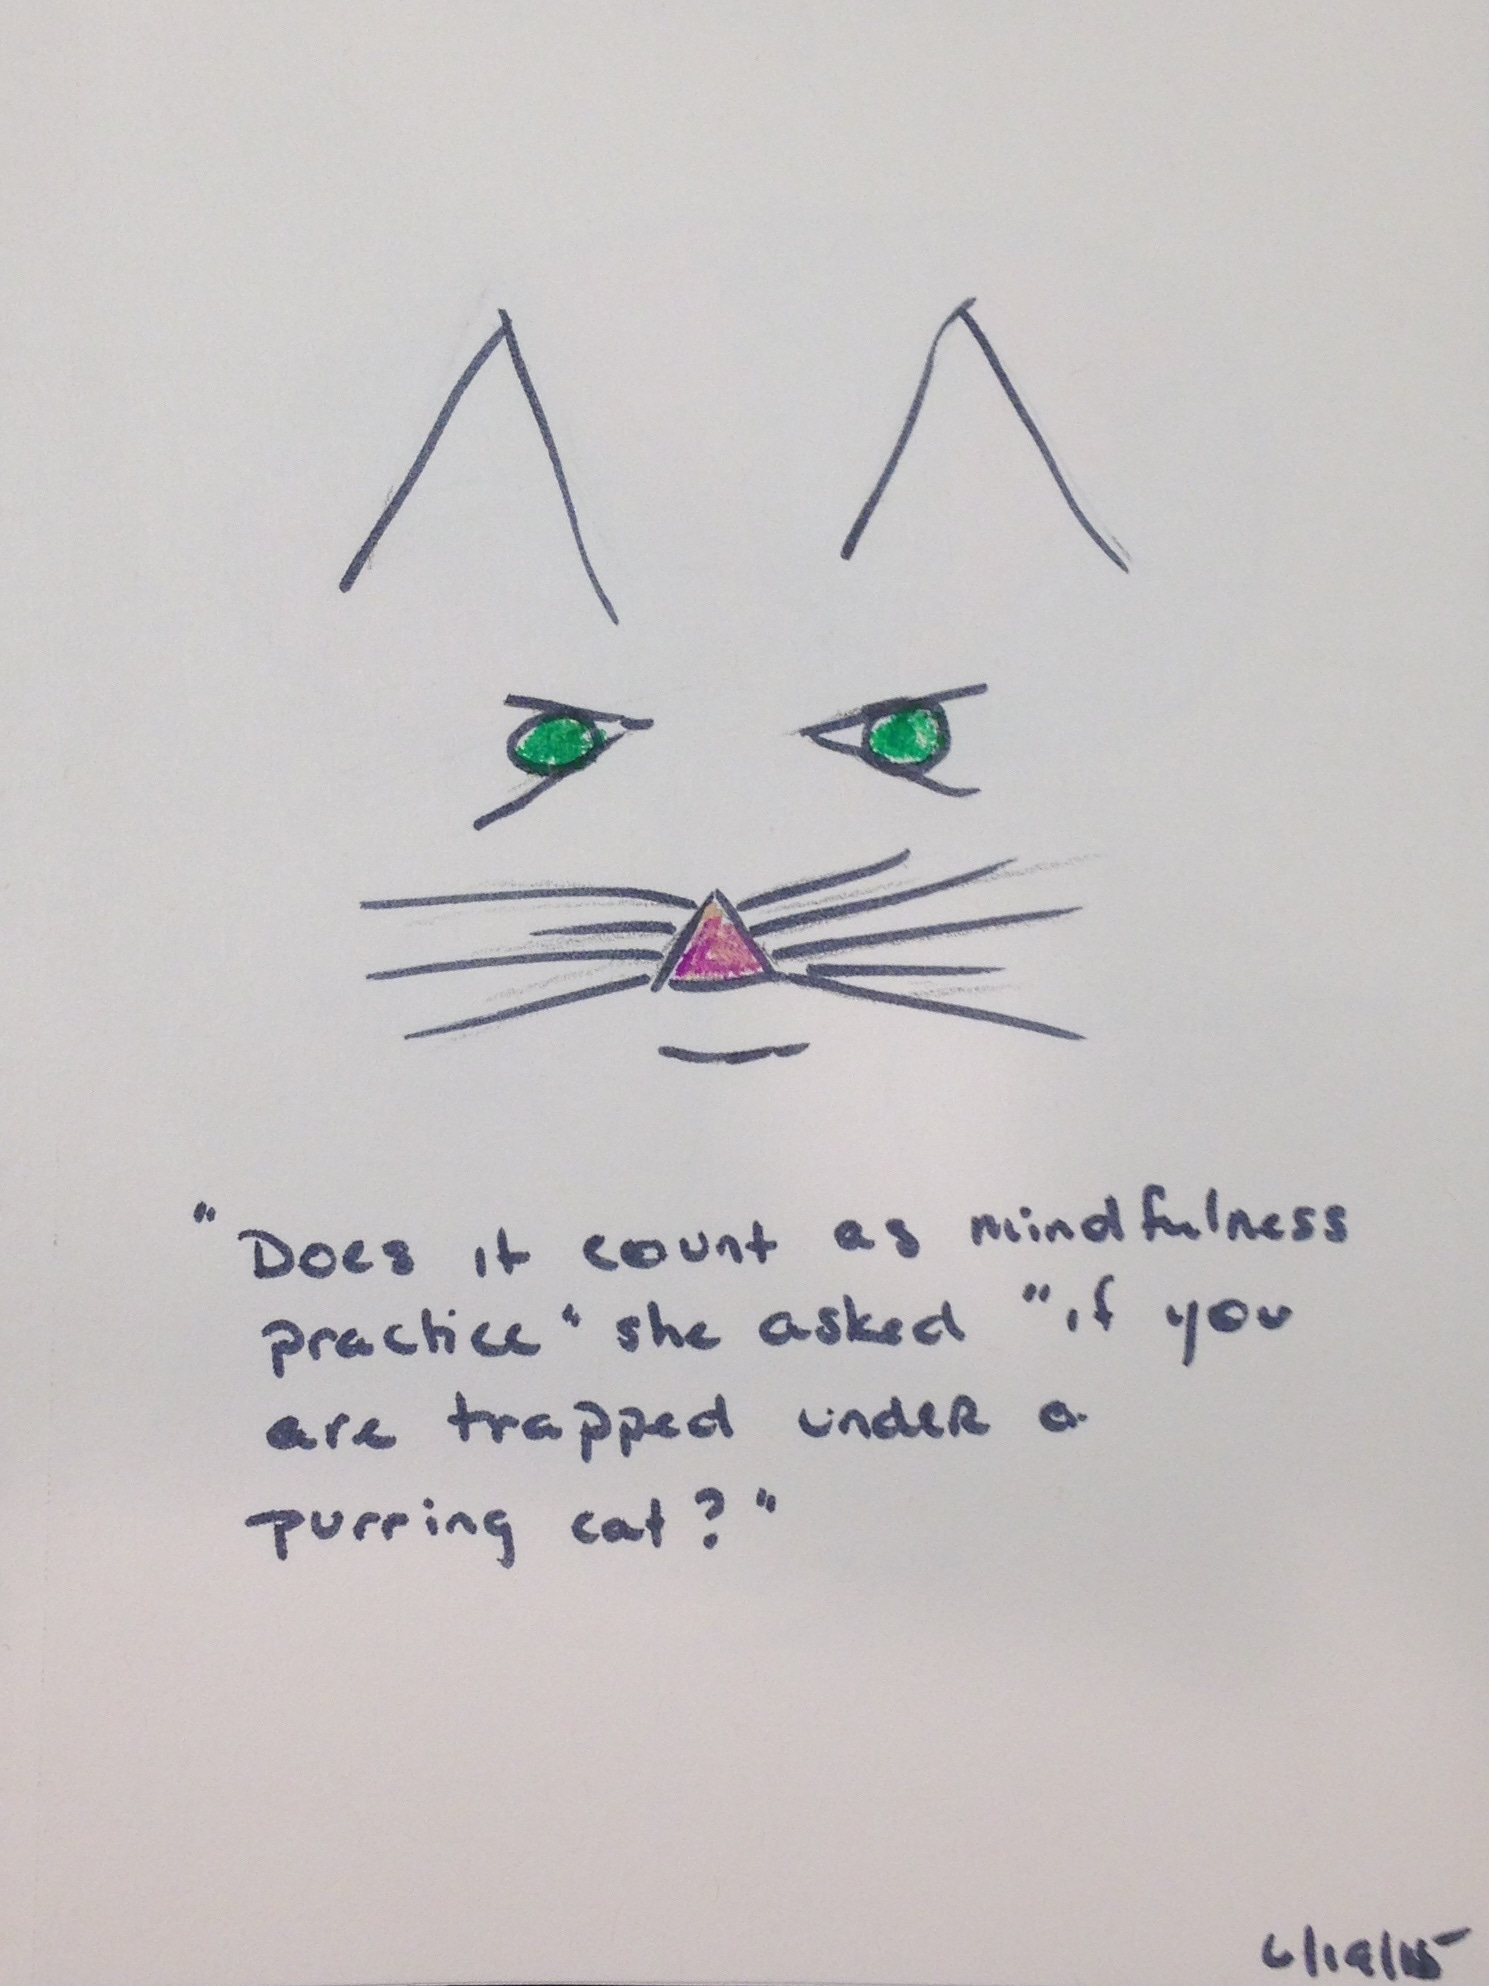 "Does it count as mindfulness
practice" she asked "if you
are trapped under a
purring cat?"
6/19/15